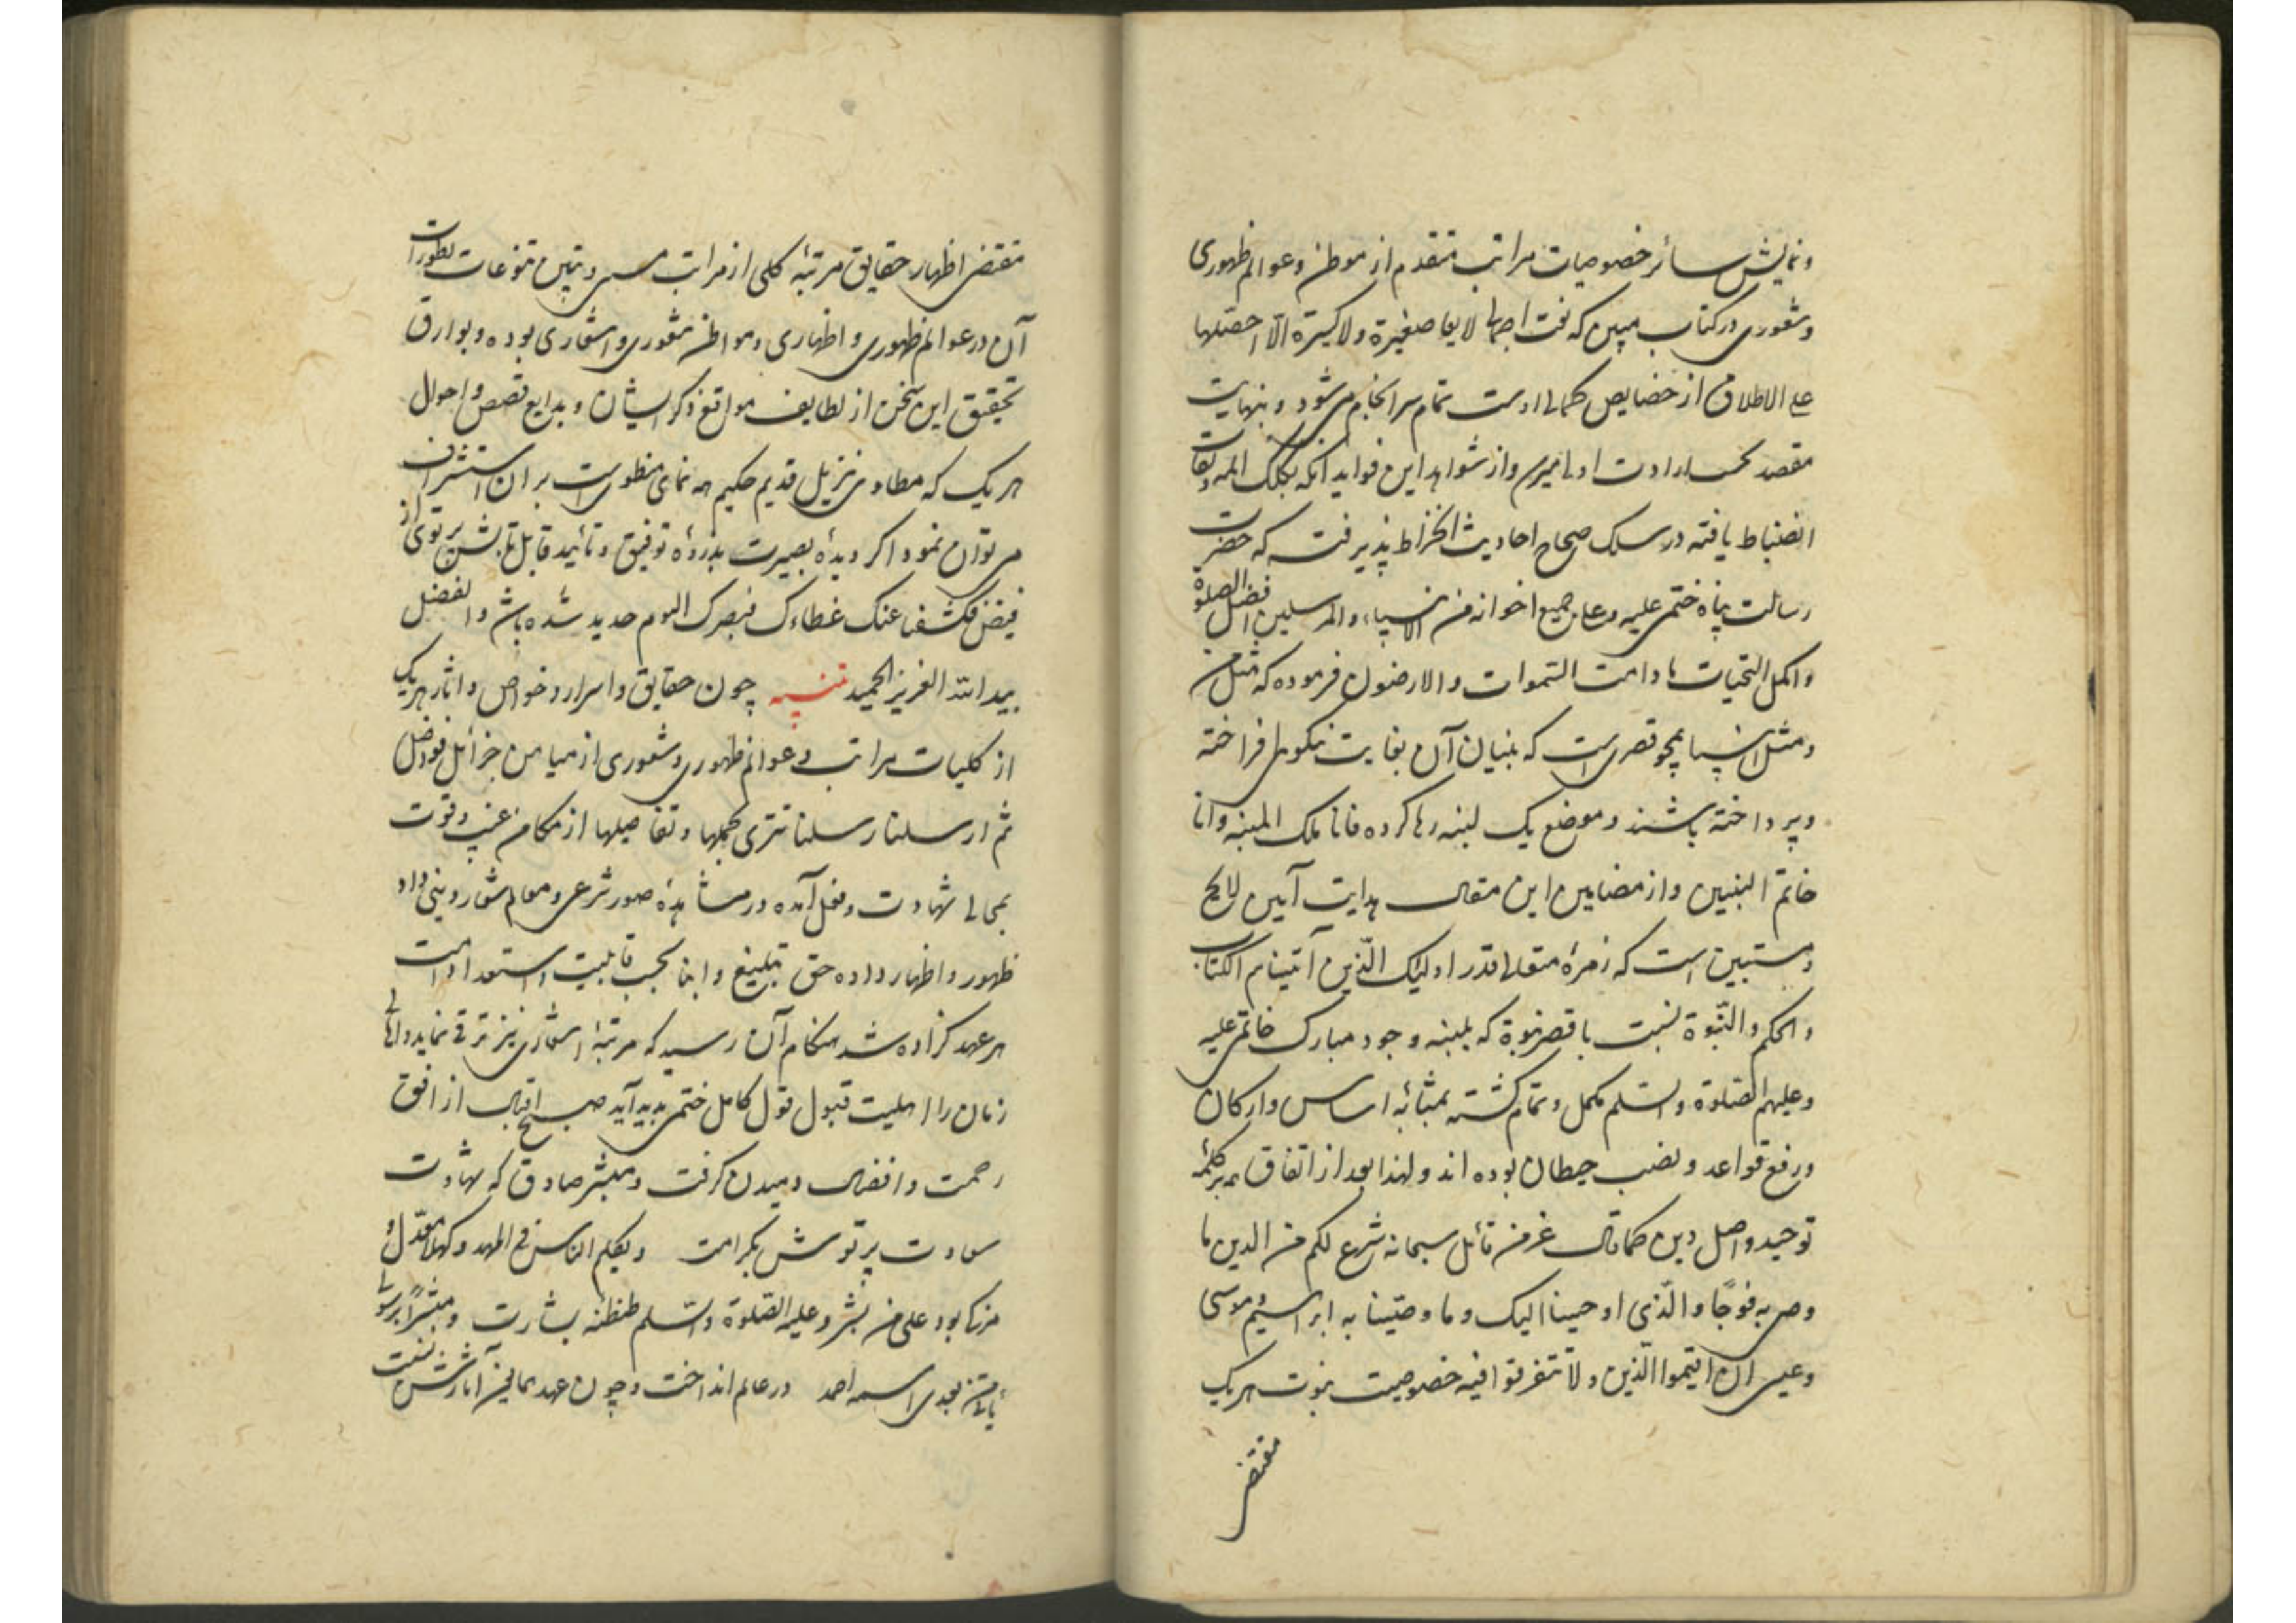 ونمایش سائر خصوصیات مراتب متقدم از موطن وعوالم ظهوری
وشعوری در کتاب مبین که نعت احصا لا یغادر صغیرة ولا کبیرة الّا احصیٰها
علی الاطلاق از خصایص کمالی اوست تمام سرانجام می شود و بنهایت
مقصد بحسب ارادت اولی میرسد واز شواهد این فواید آنکه بکلک
انضباط یافته در سلک صحاح احادیث انخراط پذیرفت که حضرت
رسالت پناه ختمی علیه وعلی جمیع اخوانه من الانبیاء والمرسلین افضل الصلوة
واکمل التحیات ما دامت السّموات والارضون فرموده که مثل من
ومثل انبیا همچو قصری است که بنیان آن بغایت نیکویی افراخته
وپرداخته باشند وموضع یک لبنه رها کرده فانا تلک اللبنه وانا
خاتم النبیین واز مضامین این مقال هدایت آیین لایح
ومستبین است که زمرهٔ متعالی قدر اولئک الّذین آتیناهم الکتاب
والحکم والنّبوة نسبت با قصر نبوة که بلبنه وجود مبارک خاتمی علیه
وعلیهم الصّلوة والسّلم مکمل وتمام گشته بمثابهٔ اساس وارکان
ورفع قواعد ونصب حیطان بوده اند ولهذا بعد از اتفاق همه بر کلمهٔ
توحید واصل دین کما قال عز من قائل سبحانه شرع لکم من الدین ما
وصی به نوحًا والّذی اوحینا الیک وما وصّینا به ابراهیم وموسی
وعیسی ان اقیموا الّدین ولا تتفرقوا فیه خصوصیت نبوت هریک
مقتضی
مقتضی اظهار حقایق مرتبهٔ کلی از مراتب وتبیین تنوعات تطورات
آن در عوالم ظهوری واظهاری ومواطن شعوری واشعاری بوده وبوارق
تحقیق این سخن از لطایف مواقع ذکر ایشان وبدایع قصص واحوال
هریک که مطاوی تنزیل قدیم حکیم همه نمای منطوی است بر آن استشراف
می توان نمود اگر دیدهٔ بصیرت بذرورهٔ توفیق وتأیید قابل تابش پرتوی از
فیض فکشفنا عنک غطاءک فبصرک الیوم حدید شده باشد والفضل
بید الله العزیز الحمید تنبیه چون حقایق واسرار وخواص واثار هریک
از کلیات مراتب وعوالم ظهوری وشعوری از میامن جزائل فواضل
ثم ارسلنا رسلنا تتری بجملها وتفاصیلها از مکامن غیب وقوت
بمجالی شهادت وفعل آمده در مشاهدهٔ صور شرعی ومعالم شعار دینی داد
ظهور واظهار داده حق تبلیغ وانبا بحسب قابلیت واستعداد امت
هر عهد گزارده شد هنگام آن رسید که مرتبهٔ اشعاری نیز ترقی نماید واهالی
زمان را اهلیت قبول قول کامل ختمی پدید آید صبح اقبال از افق
رحمت وافضال دمیدن گرفت ومبشّر صادق که شهادت
سعادت پرتوش بکرامت ویکلم الناس فی المهد وکهلا معدّل و
مزکّا بود علی من بشّر وعلیه الصّلوة والسّلم طنطنه بشارت ومبشّرًا برسول
یأتی من بعدی اسمه احمد در عالم انداخت وچون عهد